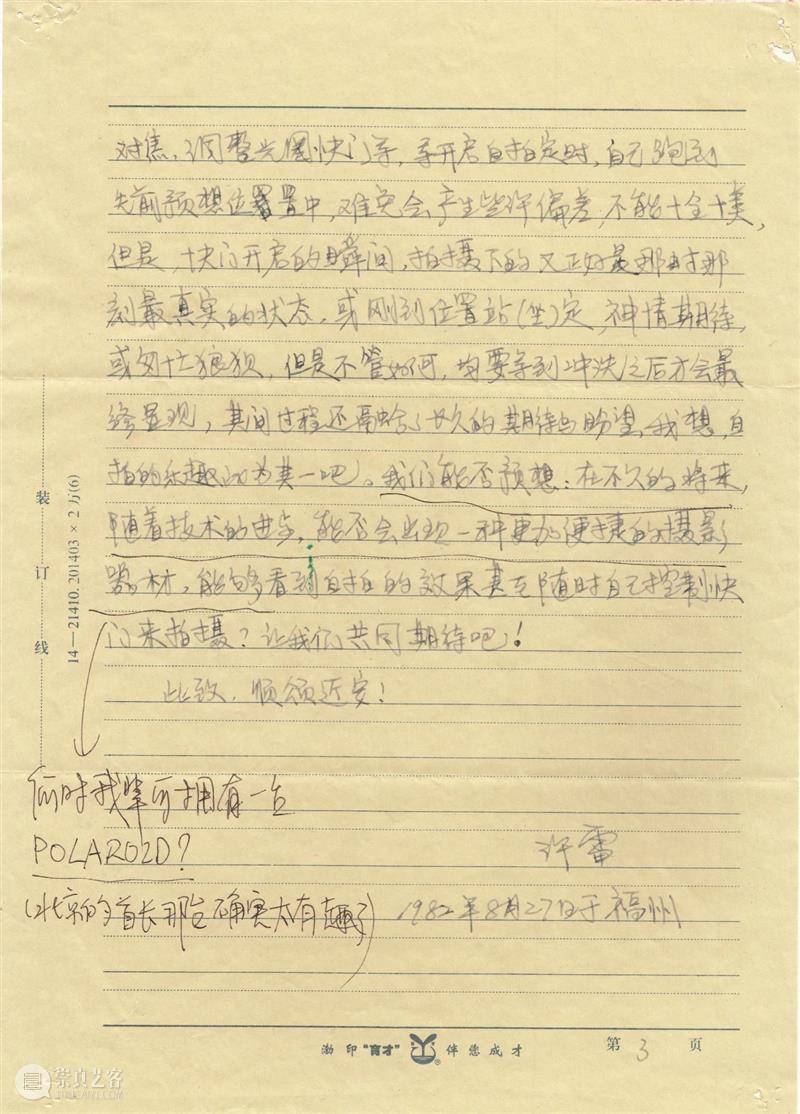 对焦、调整光圈快门等,等开启自拍定时,自己跑到
先前预想位置中,难免会产生些许偏差,不能十全十美,
但是,快门开启的瞬间,拍摄下的又正好是那时那
刻最真实的状态,或刚到位置站(坐)定,神情期待,
或匆忙狼狈,但是不管如何,均要等到冲洗之后才会最
终显现,其间过程还融合了长久的期待与盼望,我想,自
拍的乐趣此为其一吧。我们能否预想:在不久的将来,
随着技术的进步,能否会出现一种更加便捷的摄影
器材,能够看到自拍的效果甚至随时自己控制快
门来拍摄?让我们共同期待吧!
此致,顺颂近安!
何时我辈可拥有一台
POLAROID?
(北京的首长那台确实太有趣了)
许雷
1982年8月27日于福州
装订线
14—21410.201403×2万(6)
渤印“育才” ® 伴您成才
第3页
崇真艺客